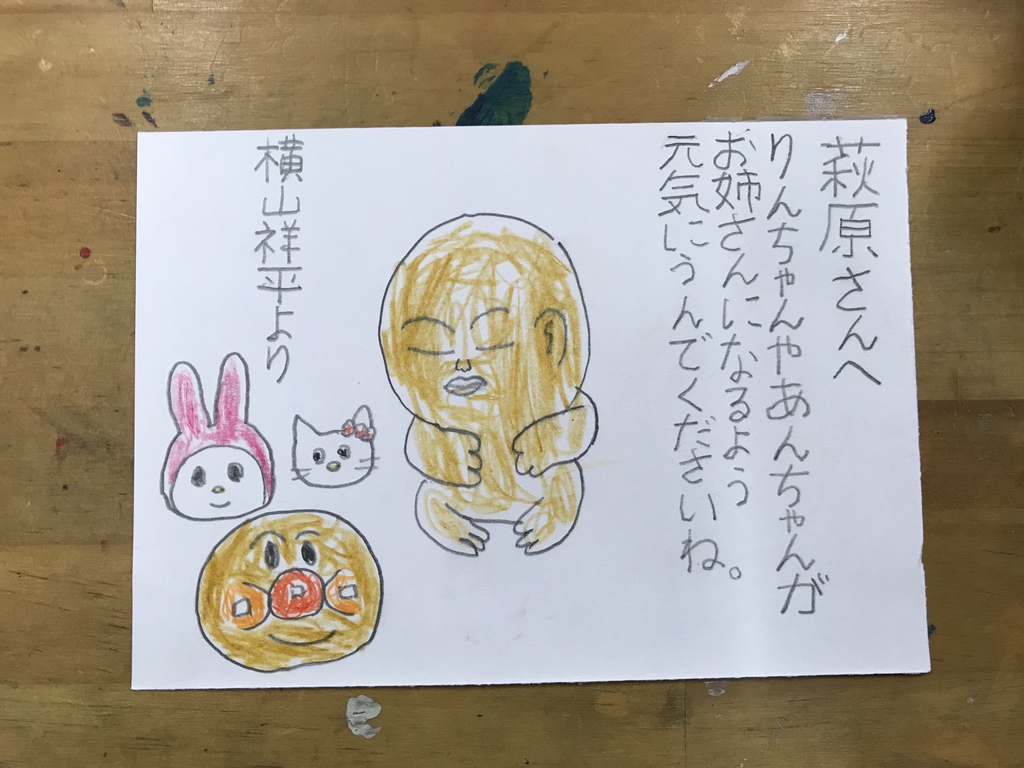 萩原さんへ
りんちゃんやあんちゃんが
お姉さんになるよう
元気にうんでくださいね。
横山祥平より